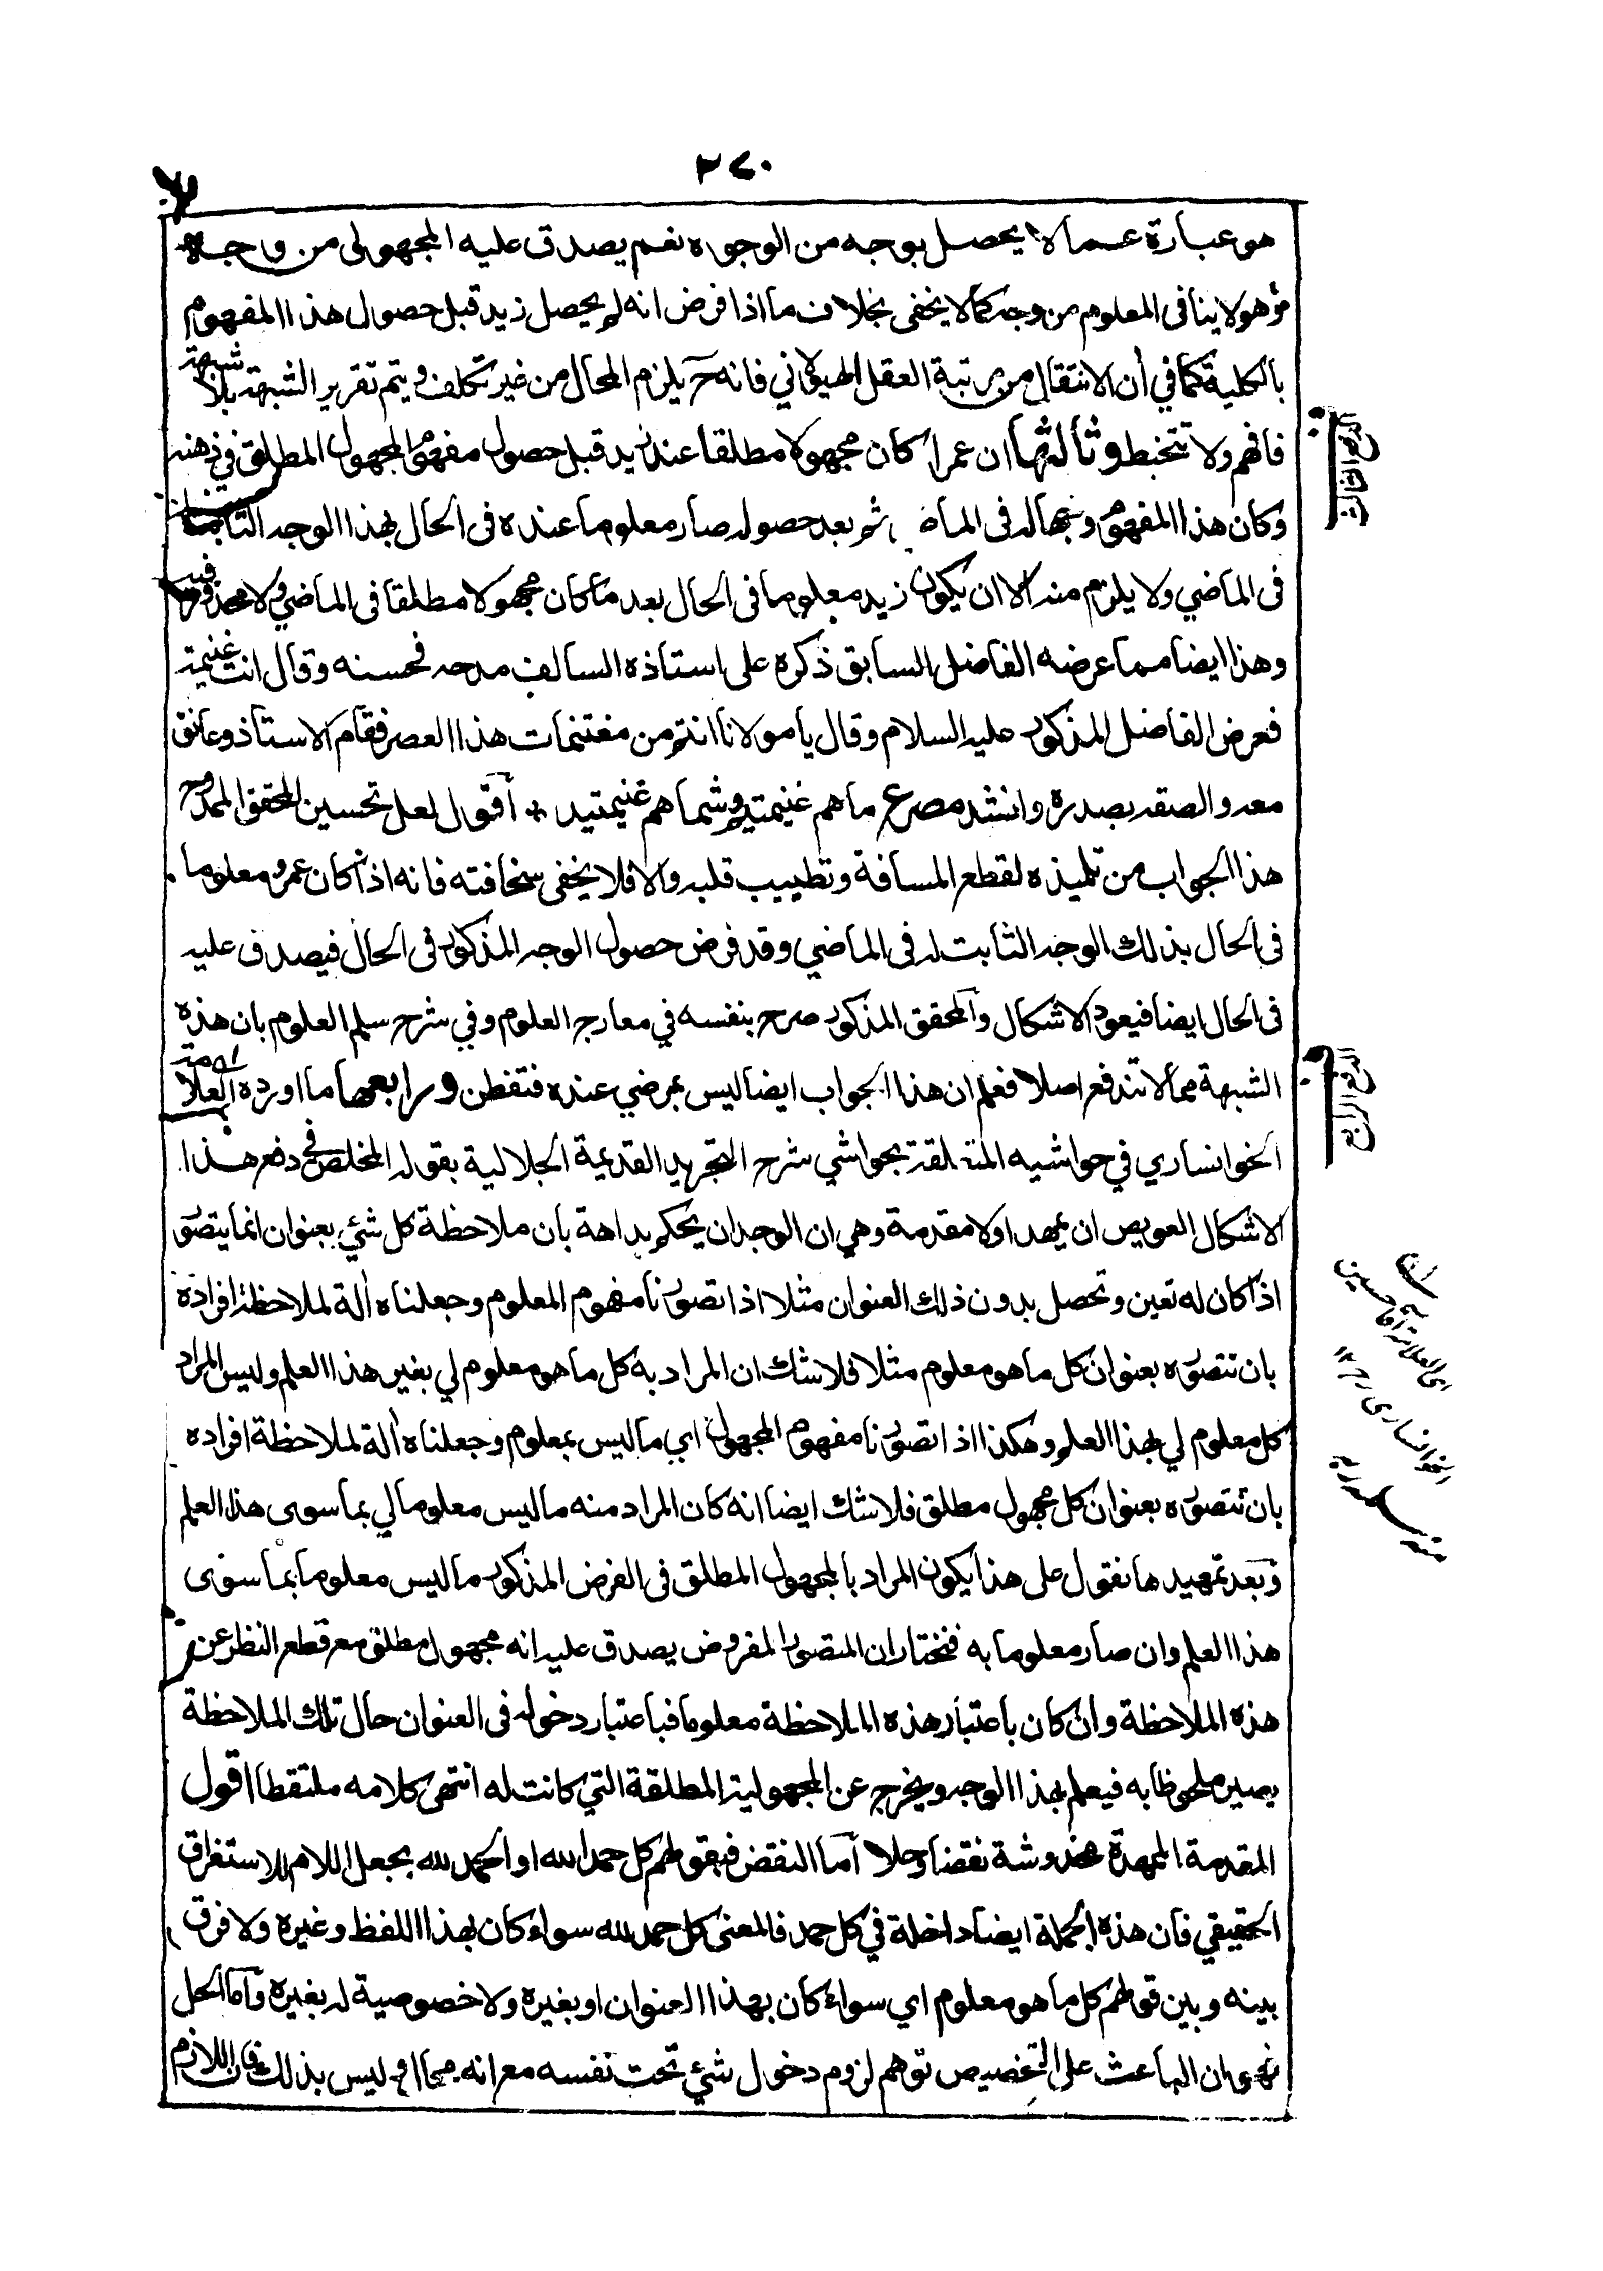 ٢٧٠
هو عبارة عما لا يحصل بوجه من الوجوه نعم يصدق عليه المجهولى من وجه
وهو لا ينافى المعلوم من وجه كما لا يخفى بخلاف ما اذا فرض انه لم يحصل زيد قبل حصول هذا المفهوم
بالكلية كما في أن الانتقال من مرتبة العقل الهيولاني فانه ح يلزم المحال من غير تكلف ويتم تقرير الشبهة بلا شبهة
فافهم ولا تتخبط وثالثها ان عمرا كان مجهولا مطلقا عند زيد قبل حصول مفهوم المجهول المطلق في ذهنه
وكان هذا المفهوم وجها له فى الماضي ثم بعد حصوله صار معلوما عنده فى الحال بهذا الوجه الثابت
فى الماضي ولا يلزم منه الا ان يكون زيد معلوما فى الحال بعد ما كان مجهولا مطلقا فى الماضي ولا محذور فيه
وهذا ايضا مما عرضه الفاضل السابق ذكره على استاذه السالف مدحه فحسنه وقال انت غنيمة
فعرض الفاضل المذكور عليه السلام وقال يا مولانا انتم من مغتنمات هذا العصر فقام الاستاذ وعانق
معه والصقه بصدره وانشد مصرع ما هم غنيمتيم وشما هم غنيمتيد * أقول لعل تحسين المحقق الممدوح
هذا الجواب من تلميذه لقطع المسافة وتطييب قلبه والا فلا يخفى سخافته فانه اذا كان عمرو معلوما
فى الحال بذلك الوجه الثابت له فى الماضي وقد فرض حصول الوجه المذكور فى الحال فيصدق عليه
فى الحال ايضا فيعود الاشكال والمحقق المذكور صرح بنفسه في معارج العلوم وفي شرح سلم العلوم بان هذه
الشبهة مما لا تندفع اصلا فعلم ان هذا الجواب ايضا ليس بمرضي عنده فتفطن ورابعها ما اورده العلامة
الخوانساري في حواشيه المتعلقة بحواشي شرح التجريد القديمة الجلالية بقوله المخلص في دفع هذا
الاشكال العويص ان يمهد اولا مقدمة وهي ان الوجدان يحكم بداهة بان ملاحظة كل شئي بعنوان انما يتصور
اذا كان له تعين وتحصل بدون ذلك العنوان مثلا اذا تصورنا مفهوم المعلوم وجعلناه آلة لملاحظة افراده
بان نتصوره بعنوان كل ما هو معلوم مثلا فلا شك ان المراد به كل ما هو معلوم لي بغير هذا العلم وليس المراد
كل معلوم لي بهذا العلم وهكذا اذا تصورنا مفهوم المجهول اي ما ليس بمعلوم وجعلناه آلة لملاحظة افراده
بان نتصوره بعنوان كل مجهول مطلق فلا شك ايضا انه كان المراد منه ما ليس معلوما لي بما سوى هذا العلم
وبعد تمهيدها نقول على هذا يكون المراد بالمجهول المطلق فى الفرض المذكور ما ليس معلوما بما سوى
هذا العلم وان صار معلوما به فنختار ان المتصور المفروض يصدق عليه انه مجهول مطلق مع قطع النظر عن
هذه الملاحظة وان كان باعتبار هذه الملاحظة معلوما فباعتبار دخوله فى العنوان حال تلك الملاحظة
يصير ملحوظا به فيعلم بهذا الوجه ويخرج عن المجهولية المطلقة التي كانت له انتهى كلامه ملتقطا اقول
المقدمة الممهدة مخدوشة نقضا وحلا أما النقض فبقولهم كل حمد لله او الحمد لله بجعل اللام للاستغراق
الحقيقي فان هذه الجملة ايضا داخلة في كل حمد فالمعنى كل حمد لله سواء كان بهذا اللفظ وغيره ولا فرق
بينه وبين قولهم كل ما هو معلوم اي سواء كان بهذا العنوان او بغيره ولا خصوصية له بغيره وأما الحل
فهو ان الباعث على التخصيص توهم لزوم دخول شئي تحت نفسه مع انه محال وليس بذلك فان اللازم
الدفع الثالث
الدفع الرابع
اى العلامة آقا حسين
الخوانسارى رح ١٢
منه